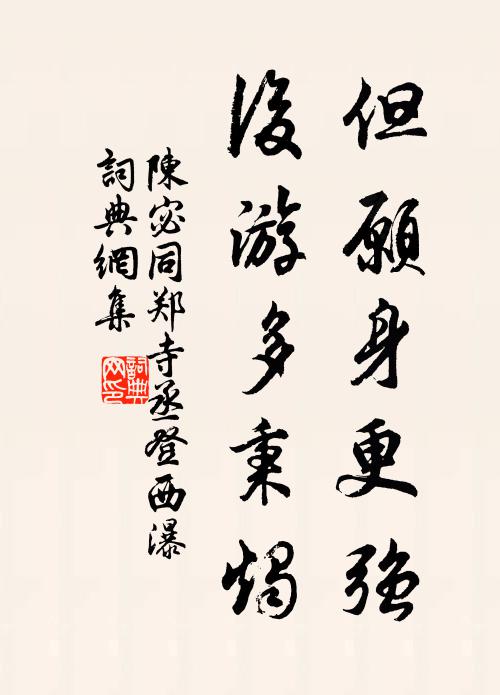 但願身更强
後游多秉燭
陳宓同郑寺丞登西瀑
詞典網集
詞典网印